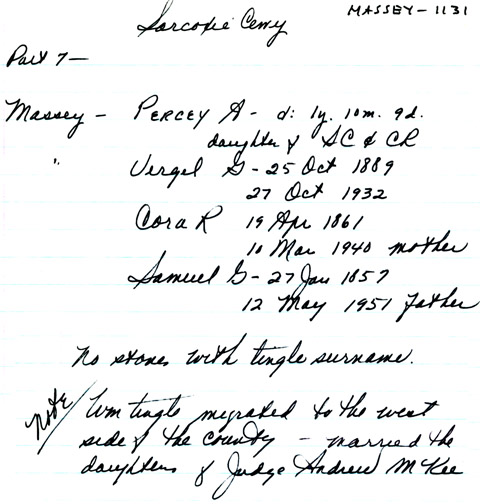 MASSEY-1131
Sarcoxie Cemy
Part 7-
Massey - PERCEY A - d: 1y. 10m. 9d.
daughter of SC & CR
" Vergel G - 25 Oct 1889
27 Oct 1932
Cora R 19 Apr 1861
10 Mar 1940 mother
Samuel G - 27 Jan 1857
12 May 1951 father
No stones with tingle surname.
Note/ Wm tingle migrated to the west
side of the county - married the
daughters of Judge Andrew McKee